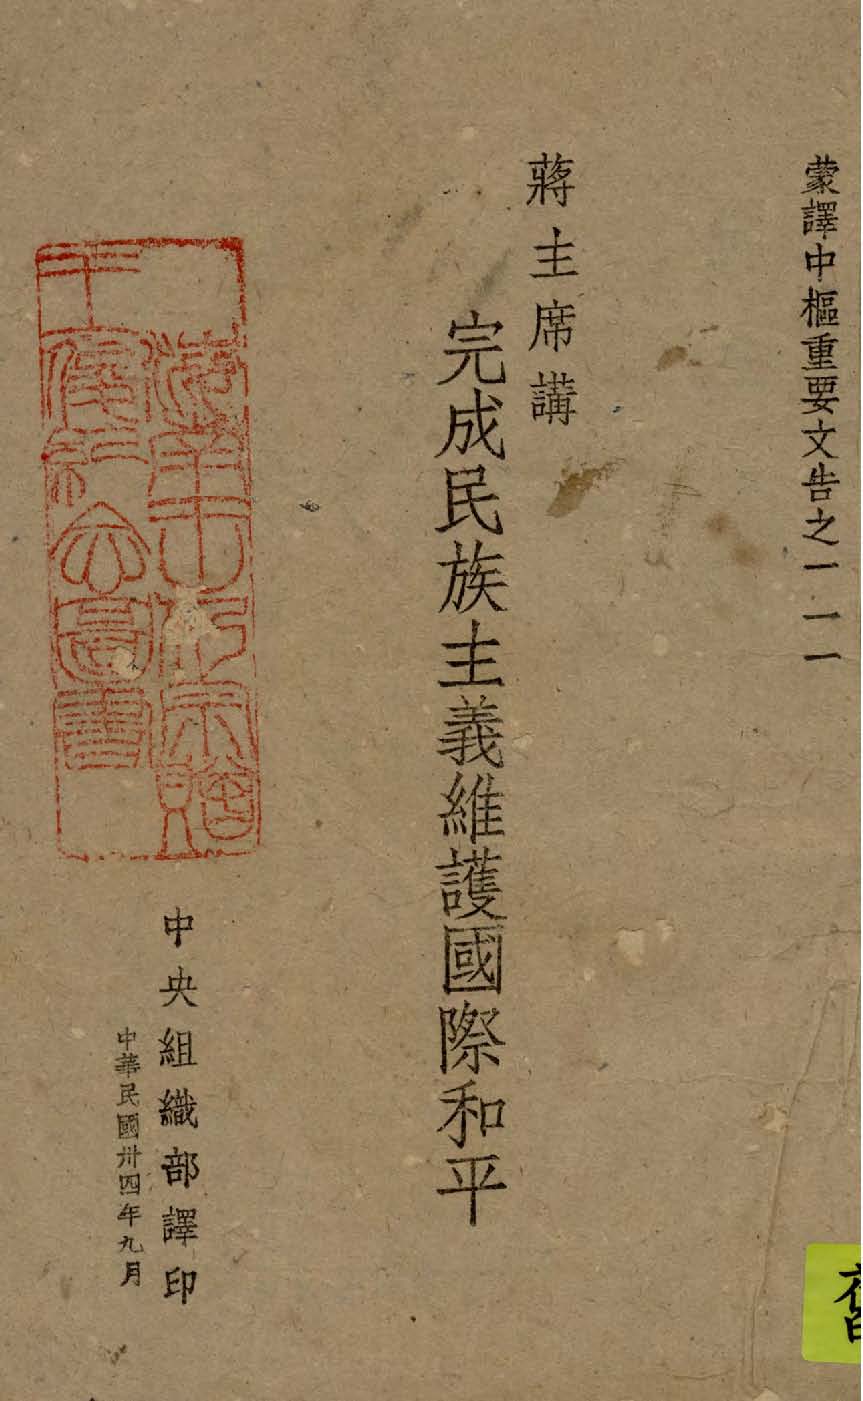 蒙譯中樞重要文告之一一一
蔣主席講
完成民族主義維護國際和平
中央組織部譯印
中華民國卅四年九月